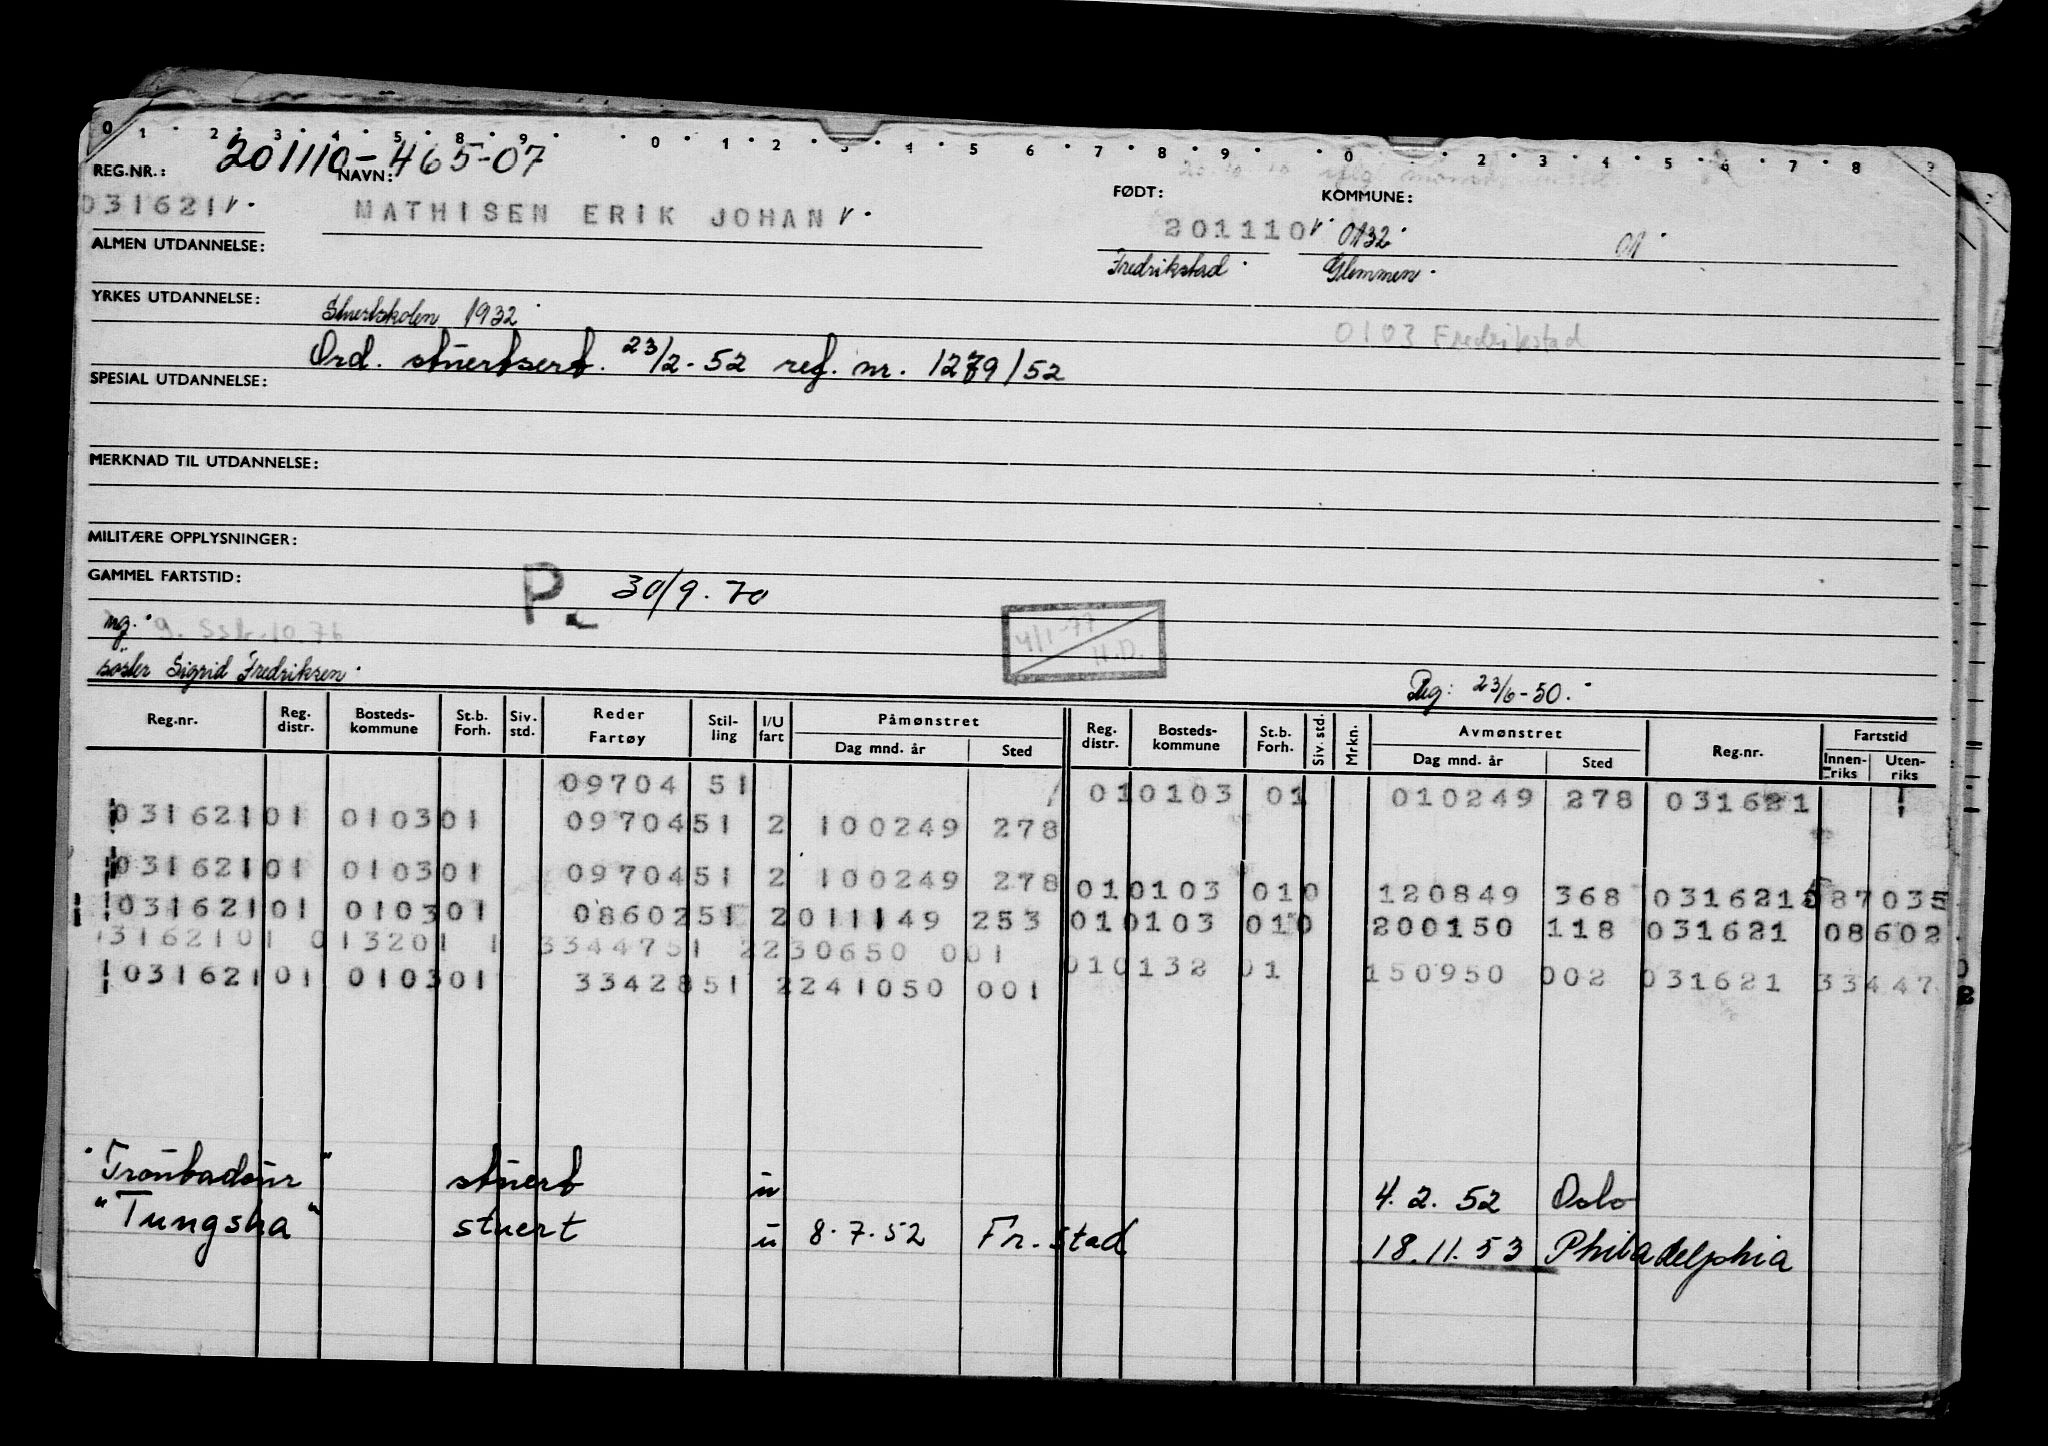 0 1 2 3 4 5 8 9 0 1 2 3 4 5 6 7 8 9 0 2 3 4 5 6 7 8 9
REG.NR.: 201110-465-07 NAVN: FØDT: KOMMUNE:
031621 MATHISEN ERIK JOHAN 201110 0132 01
ALMEN UTDANNELSE: Fredrikstad Glemmen
YRKES UTDANNELSE: Stuertskolen 1932
0103 Fredrikstad
Ord. stuertsert. 23/2-52 reg. nr. 1279/52
SPESIAL UTDANNELSE:
MERKNAD TIL UTDANNELSE:
MILITÆRE OPPLYSNINGER:
GAMMEL FARTSTID: P. 30/9.70
ug. 4/1-77 H.D.
søster Sigrid Fredriksen
Reg: 23/6-50.
Reg.nr. Reg. distr. Bosteds- kommune St.b. Forh. Siv. std. Reder Fartøy Stil- ling I/U fart Påmønstret Dag mnd. år Sted Reg. distr. Bosteds- kommune St.b. Forh. Siv. std. Mrkn. Avmønstret Dag mnd. år Sted Reg.nr. Fartstid Innen- riks Uten- riks
09704 51 010103 01 010249 278 031621
03162101 010301 0970451 2 100249 278
03162101 010301 0970451 2 100249 278 010103 010 120849 368 031621 87035
03162101 010301 0860251 2011149 253 010103 010 200150 118 031621 08602
3162101 013201 1 3344751 2230650 001 010132 01 150950 002 031621 33447
03162101 010301 3342851 2241050 001
"Troubadour" stuert u 4.2.52 Oslo
"Tungsha" stuert u 8.7.52 Fr.stad 18.11.53 Philadelphia